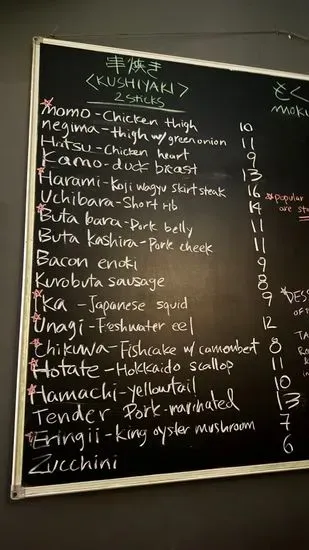 串焼き
<KUSHIYAKI>
2 STICKS
momo - Chicken thigh 10
negima - thigh w/ green onion 11
Hatsu - Chicken heart 9
Kamo - duck breast 13
Harami - Koji wagyu skirt steak 16
Uchibara - Short rib 14
Buta bara - Pork belly 11
Buta kashira - Pork cheek 11
Bacon enoki 9
Kurobuta sausage 8
Ika - Japanese squid 9
Unagi - Freshwater eel 12
Chikuwa - Fishcake w/ camembert 8
Hotate - Hokkaido scallop 11
Hamachi - yellowtail 10
Tender Pork - marinated 13
Eringii - king oyster mushroom 7
Zucchini 6
とく
popular
are